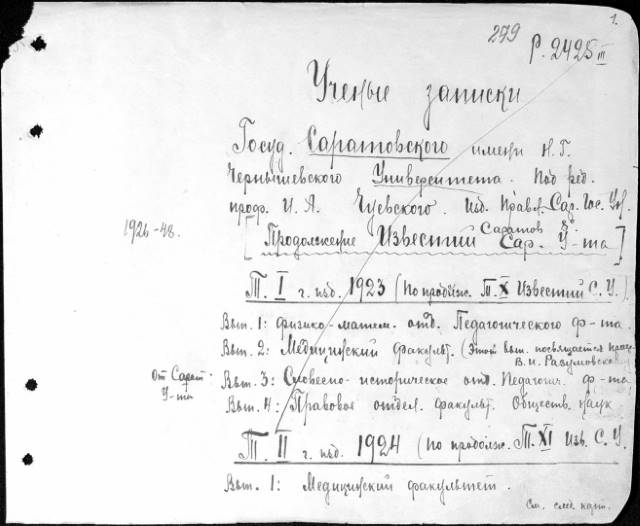 1.
279
Р. 2425 III
Ученые записки
Госуд. Саратовского имени Н. Г.
Чернышевского Университета. Под ред.
проф. И. А. Чуевского. Изд. Правл. Сар. Гос. Ун.
1926-48.
Саратов 8°.
[Продолжение Известий Сар. У-та]
Т. I г. изд. 1923 (По продолж. Т. X Известий С. У.)
Вып. 1: Физико-матем. отд. Педагогического ф-та.
Вып. 2: Медицинский факульт. (Этот вып. посвящается проф.
В. И. Разумовско
От Сарат.
У-та
Вып. 3: Словесно-историческое отд. Педагогич. ф-та
Вып. 4: Правовое отдел. факульт. Обществ. наук
Т. II г. изд. 1924 (По продолж. Т. XI Изв. С. У.
Вып. 1: Медицинский факультет.
См. след. карт.